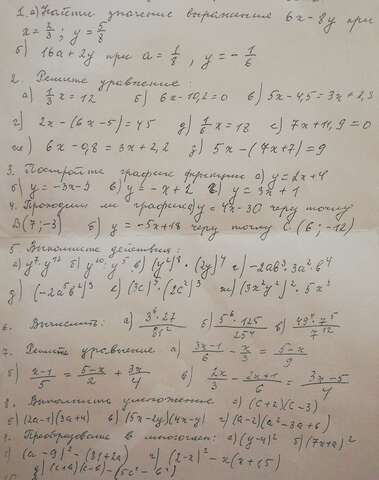 1. а) Найти значение выражения 6x - 8y при
x = 2/3 ; y = 5/8
б) 16a + 2y при a = 1/8 , y = - 1/6
2. Решите уравнение :
а) 1/3 x = 12 б) 6x - 10,2 = 0 в) 5x - 4,5 = 3x + 2,3
г) 2x - (6x - 5) = 45 д) 1/6 x = 18 е) 7x + 11,9 = 0
ж) 6x - 0,8 = 3x + 2,2 з) 5x - (7x + 7) = 9
3. Постройте график функции а) y = 2x + 4
б) y = -3x - 3 в) y = -x + 2 г) y = 3x + 1
4. Проходит ли график а) y = 4x - 30 через точку
B (7; -3) б) y = -5x + 18 через точку C (6; -12)
5. Выполните действия :
а) y⁷ · y¹² б) y²⁰ : y⁵ в) (y²)⁸ · (2y)⁴ г) -2ab³ · 3a² b⁴
д) (-2a⁵b²)³ е) (3c)³ · (2c²)³ ж) (3x²y⁴)² · 5x³
6. Вычислить: а) 3⁶ · 27 / 81² б) 5⁶ · 125 / 25⁴ в) 49⁴ · 7⁵ / 7¹²
7. Решите уравнение а) 3x-1/6 - x/3 = 5-x/9
б) x-1/5 = 5-x/2 + 3x/4 в) 2x/3 - 2x+1/6 = 3x-5/4
8. Выполнить умножение а) (c+2)(c-3)
б) (2a-1)(3a+4) в) (5x-2y)(4x-y) г) (a-2)(a²-3a+6)
Преобразование в многочлен: а) (y-4)² б) (7x+a)²
(a-9)² - (81+2a) г) (2-x)² - x(x+15)